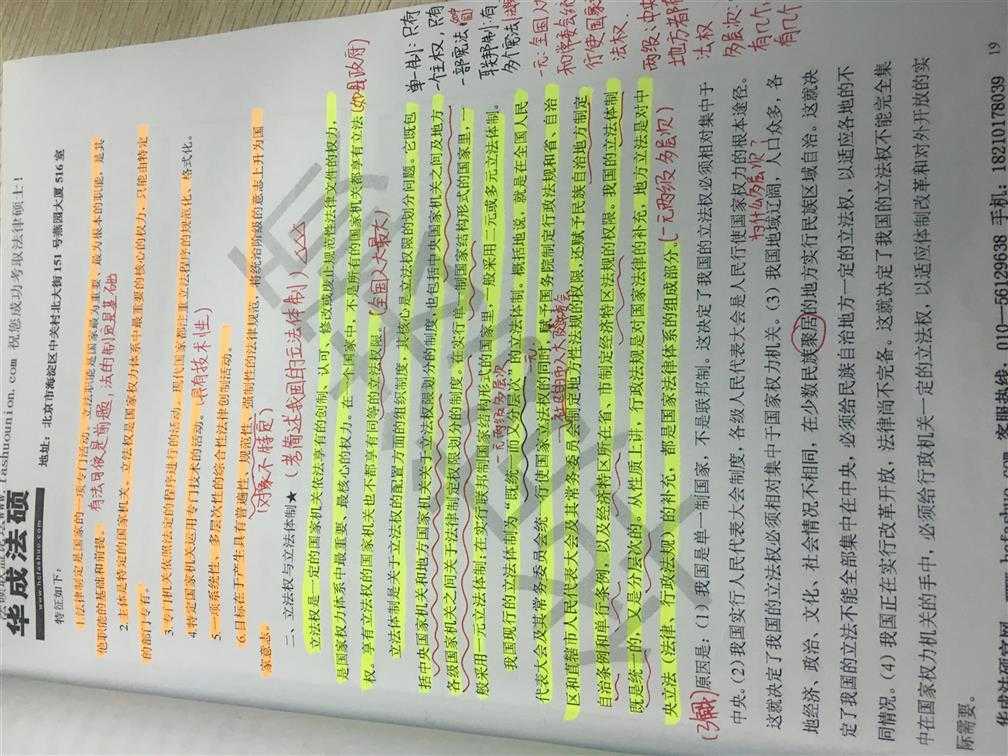 华成法硕
www.hcfashuo.com
fashuounion.com 祝您成功考取法律硕士!
地址:北京市海淀区中关村北大街 151 号燕园大厦 516 室
特征如下:
1.法律制定是国家的一项专门活动。立法职能是国家最为重要、最为根本的职能,是其
他职能的基础和前提。
有法可依是前提,法的制定是基础
2.主体是特定的国家机关。立法权是国家权力体系中最重要的核心的权力,只能由特定
的部门专有。
3.专门机关依照法定的程序进行的活动。现代国家都注重立法程序的规范化、格式化。
4.特定国家机关运用专门技术的活动。
具有技术性)
5.一项系统性、多层次性的综合性法律创制活动。
6.目标在于产生具有普遍性、规范性、强制性的法律规范,将统治阶级的意志上升为国
家意志。
(对象不特定)
二、立法权与立法体制★
(考简述我国自立法体制)
立法权是一定的国家机关依法享有的创制、认可、修改或废止规范性法律文件的权力,
是国家权力体系中最重要、最核心的权力。在一个国家中,不是所有的国家机关都享有立法
(如县政府)
权。享有立法权的国家机关也不都享有同等的立法权限。
(全国人大最大)
立法体制是关于立法权的配置方面的组织制度,其核心是立法权限的划分问题。它既包
括中央国家机关和地方国家机关关于立法权限划分的制度,也包括中央国家机关之间及地方
各级国家机关之间关于法律制定权限划分的制度。在实行单一制国家结构形式的国家里,一
般采用一元立法体制;在实行联邦制国家结构形式的国家里,一般采用二元或多元立法体制。
单一制:只有
一个主权,只有
一部宪法
联邦制:有
多个宪法
我国现行的立法体制为:既统一而又分层次的立法体制。概括地说,就是在全国人民
一元两级多层次
代表大会及其常务委员会统一行使国家立法权的同时,赋予国务院制定行政法规和省、自治
区和直辖市人民代表大会及其常务委员会制定地方性法规的权限,还赋予民族自治地方制定
自治条例和单行条例,以及经济特区所在省、市制定经济特区法规的权限。我国的立法体制
既是统一的,又是分层次的。从性质上讲,行政法规是对国家法律的补充,地方立法是对中
央立法(法律、行政法规)的补充,都是国家法律体系的组成部分。
(一元两级多层次)
一元:全国人大
和常委会统一
行使国家
立法权
两级:中央
地方者都有
立法权
多层次:
有几个
有几个
为什么多层次?
原因是:(1)我国是单一制国家,不是联邦制。这决定了我国的立法权必须相对集中于
中央。(2)我国实行人民代表大会制度,各级人民代表大会是人民行使国家权力的根本途径。
这就决定了我国的立法权必须相对集中于国家权力机关。(3)我国地域辽阔,人口众多,各
地经济、政治、文化、社会情况不相同,在少数民族聚居的地方实行民族区域自治。这就决
定了我国的立法不能全部集中在中央,必须给民族自治地方一定的立法权,以适应各地的不
同情况。(4)我国正在实行改革开放,法律尚不完备。这就决定了我国的立法权不能完全集
中在国家权力机关的手中,必须给行政机关一定的立法权,以适应体制改革和对外开放的实
际需要。
19
手机:18210178039